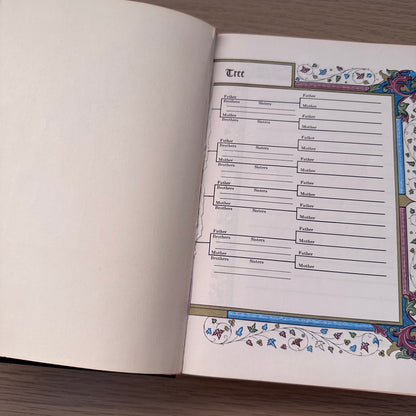 Tree
Father
Father
Brothers Sisters
Mother
Mother
Father
Brothers
Mother
Father
Father
Brothers Sisters
Mother
Mother
Father
Brothers Sisters
Mother
Father
Father
Brothers Sisters
Mother
Mother
Father
Brothers Sisters
Mother
Father
Father
Brothers Sisters
Mother
Mother
Father
Brothers Sisters
Mother